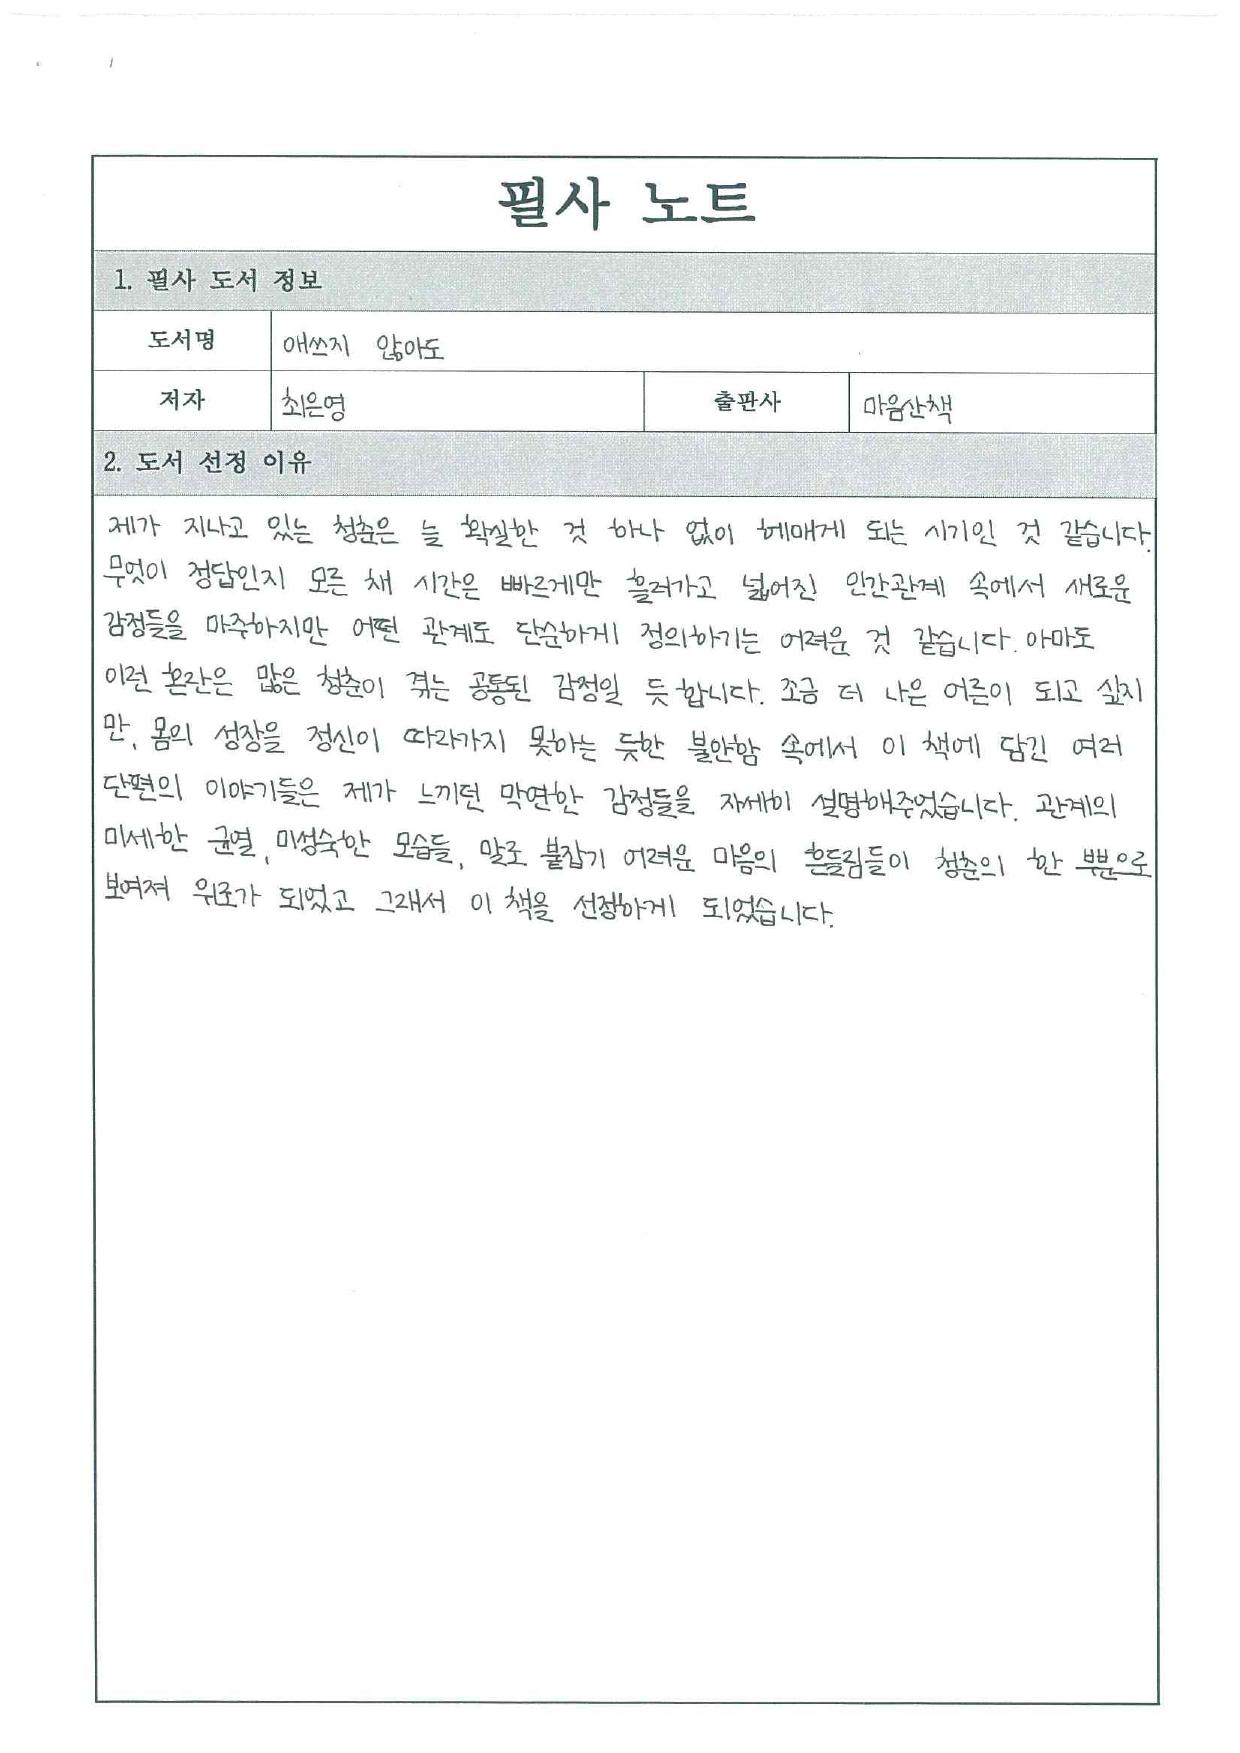 필사 노트
1. 필사 도서 정보
도서명 애쓰지 않아도
저자 최은영 출판사 마음산책
2. 도서 선정 이유
제가 지나고 있는 청춘은 늘 확실한 것 하나 없이 헤매게 되는 시기인 것 같습니다.
무엇이 정답인지 모른 채 시간은 빠르게만 흘러가고 넓어진 인간관계 속에서 새로운
감정들을 마주하지만 어떤 관계도 단순하게 정의하기는 어려운 것 같습니다. 아마도
이런 혼란은 많은 청춘이 겪는 공통된 감정일 듯 합니다. 조금 더 나은 어른이 되고 싶지
만, 몸의 성장을 정신이 따라가지 못하는 듯한 불안함 속에서 이 책에 담긴 여러
단편의 이야기들은 제가 느끼던 막연한 감정들을 자세히 설명해주었습니다. 관계의
미세한 균열, 미성숙한 모습들, 말로 붙잡기 어려운 마음의 흔들림들이 청춘의 한 부분으로
보여져 위로가 되었고 그래서 이 책을 선정하게 되었습니다.